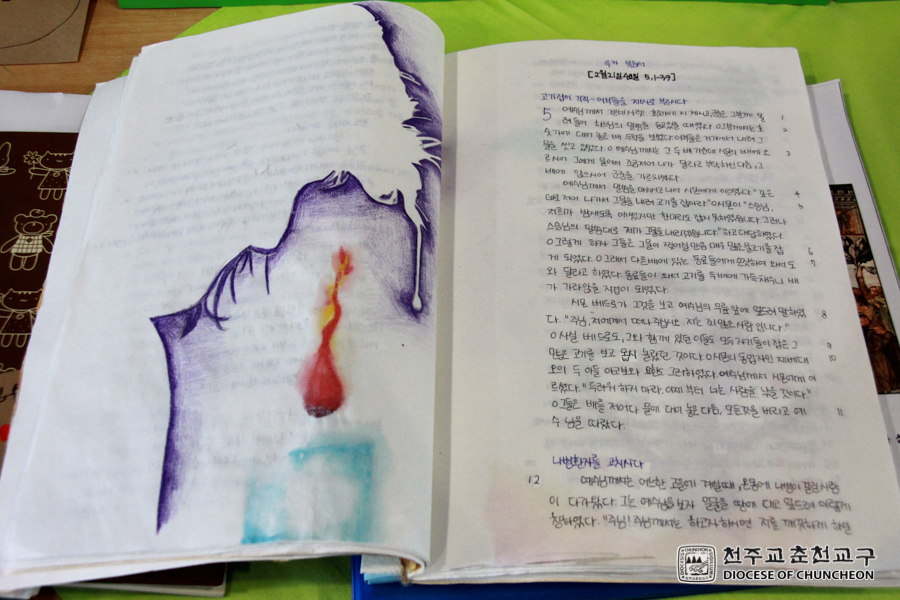 루카 복음서
[2월21일 5,1-39]
고기잡이 기적 - 어부들을 제자로 부르시다
5 예수님께서 겐네사렛 호숫가에 서 계시고, 군중은 그분께 몰 1
려들어 하느님의 말씀을 듣고 있을 때였다. ○그분께서는 호 2
숫가에 대어 놓은 배 두 척을 보셨다. 어부들은 거기에서 내려 그
물을 씻고 있었다. ○예수님께서는 그 두 배 가운데 시몬의 배에 오 3
르시어 그에게 뭍에서 조금 저어 나가 달라고 부탁하신 다음, 그
배에 앉으시어 군중을 가르치셨다.
예수님께서 말씀을 마치시고 나서 시몬에게 이르셨다. "깊은 4
데로 저어 나가서 그물을 내려 고기를 잡아라." ○시몬이 "스승님, 5
저희가 밤새도록 애썼지만 한마리도 잡지 못하였습니다. 그러나
스승님의 말씀대로 제가 그물을 내리겠습니다." 하고 대답하였다.
○그렇게 하자 그들은 그물이 찢어질 만큼 매우 많은 물고기를 잡 6
게 되었다. ○그래서 다른 배에 있는 동료들에게 손짓하여 와서 도 7
와 달라고 하였다. 동료들이 와서 고기를 두 배에 가득 채우니 배
가 가라앉을 지경이 되었다.
시몬 베드로가 그것을 보고 예수님의 무릎 앞에 엎드려 말하였 8
다. "주님, 저에게서 떠나 주십시오. 저는 죄 많은 사람입니다."
○사실 베드로도, 그와 함께 있던 이들도 모두 자기들이 잡은 그 9
많은 고기를 보고 몹시 놀랐던 것이다. ○시몬의 동업자인 제베대 10
오의 두 아들 야고보와 요한도 그러하였다. 예수님께서 시몬에게 이
르셨다. "두려워하지 마라. 이제부터 너는 사람을 낚을 것이다."
○그들은 배를 저어다 뭍에 대어 놓은 다음, 모든 것을 버리고 예 11
수님을 따랐다.
나병 환자를 고치시다
12 예수님께서 어느 한 고을에 계실 때, 온몸에 나병이 걸린 사람
이 다가왔다. 그는 예수님을 보자 얼굴을 땅에 대고 엎드려 이렇게
청하였다. "주님! 주님께서는 하고자 하시면 저를 깨끗하게 하실
천주교춘천교구
DIOCESE OF CHUNCHEON